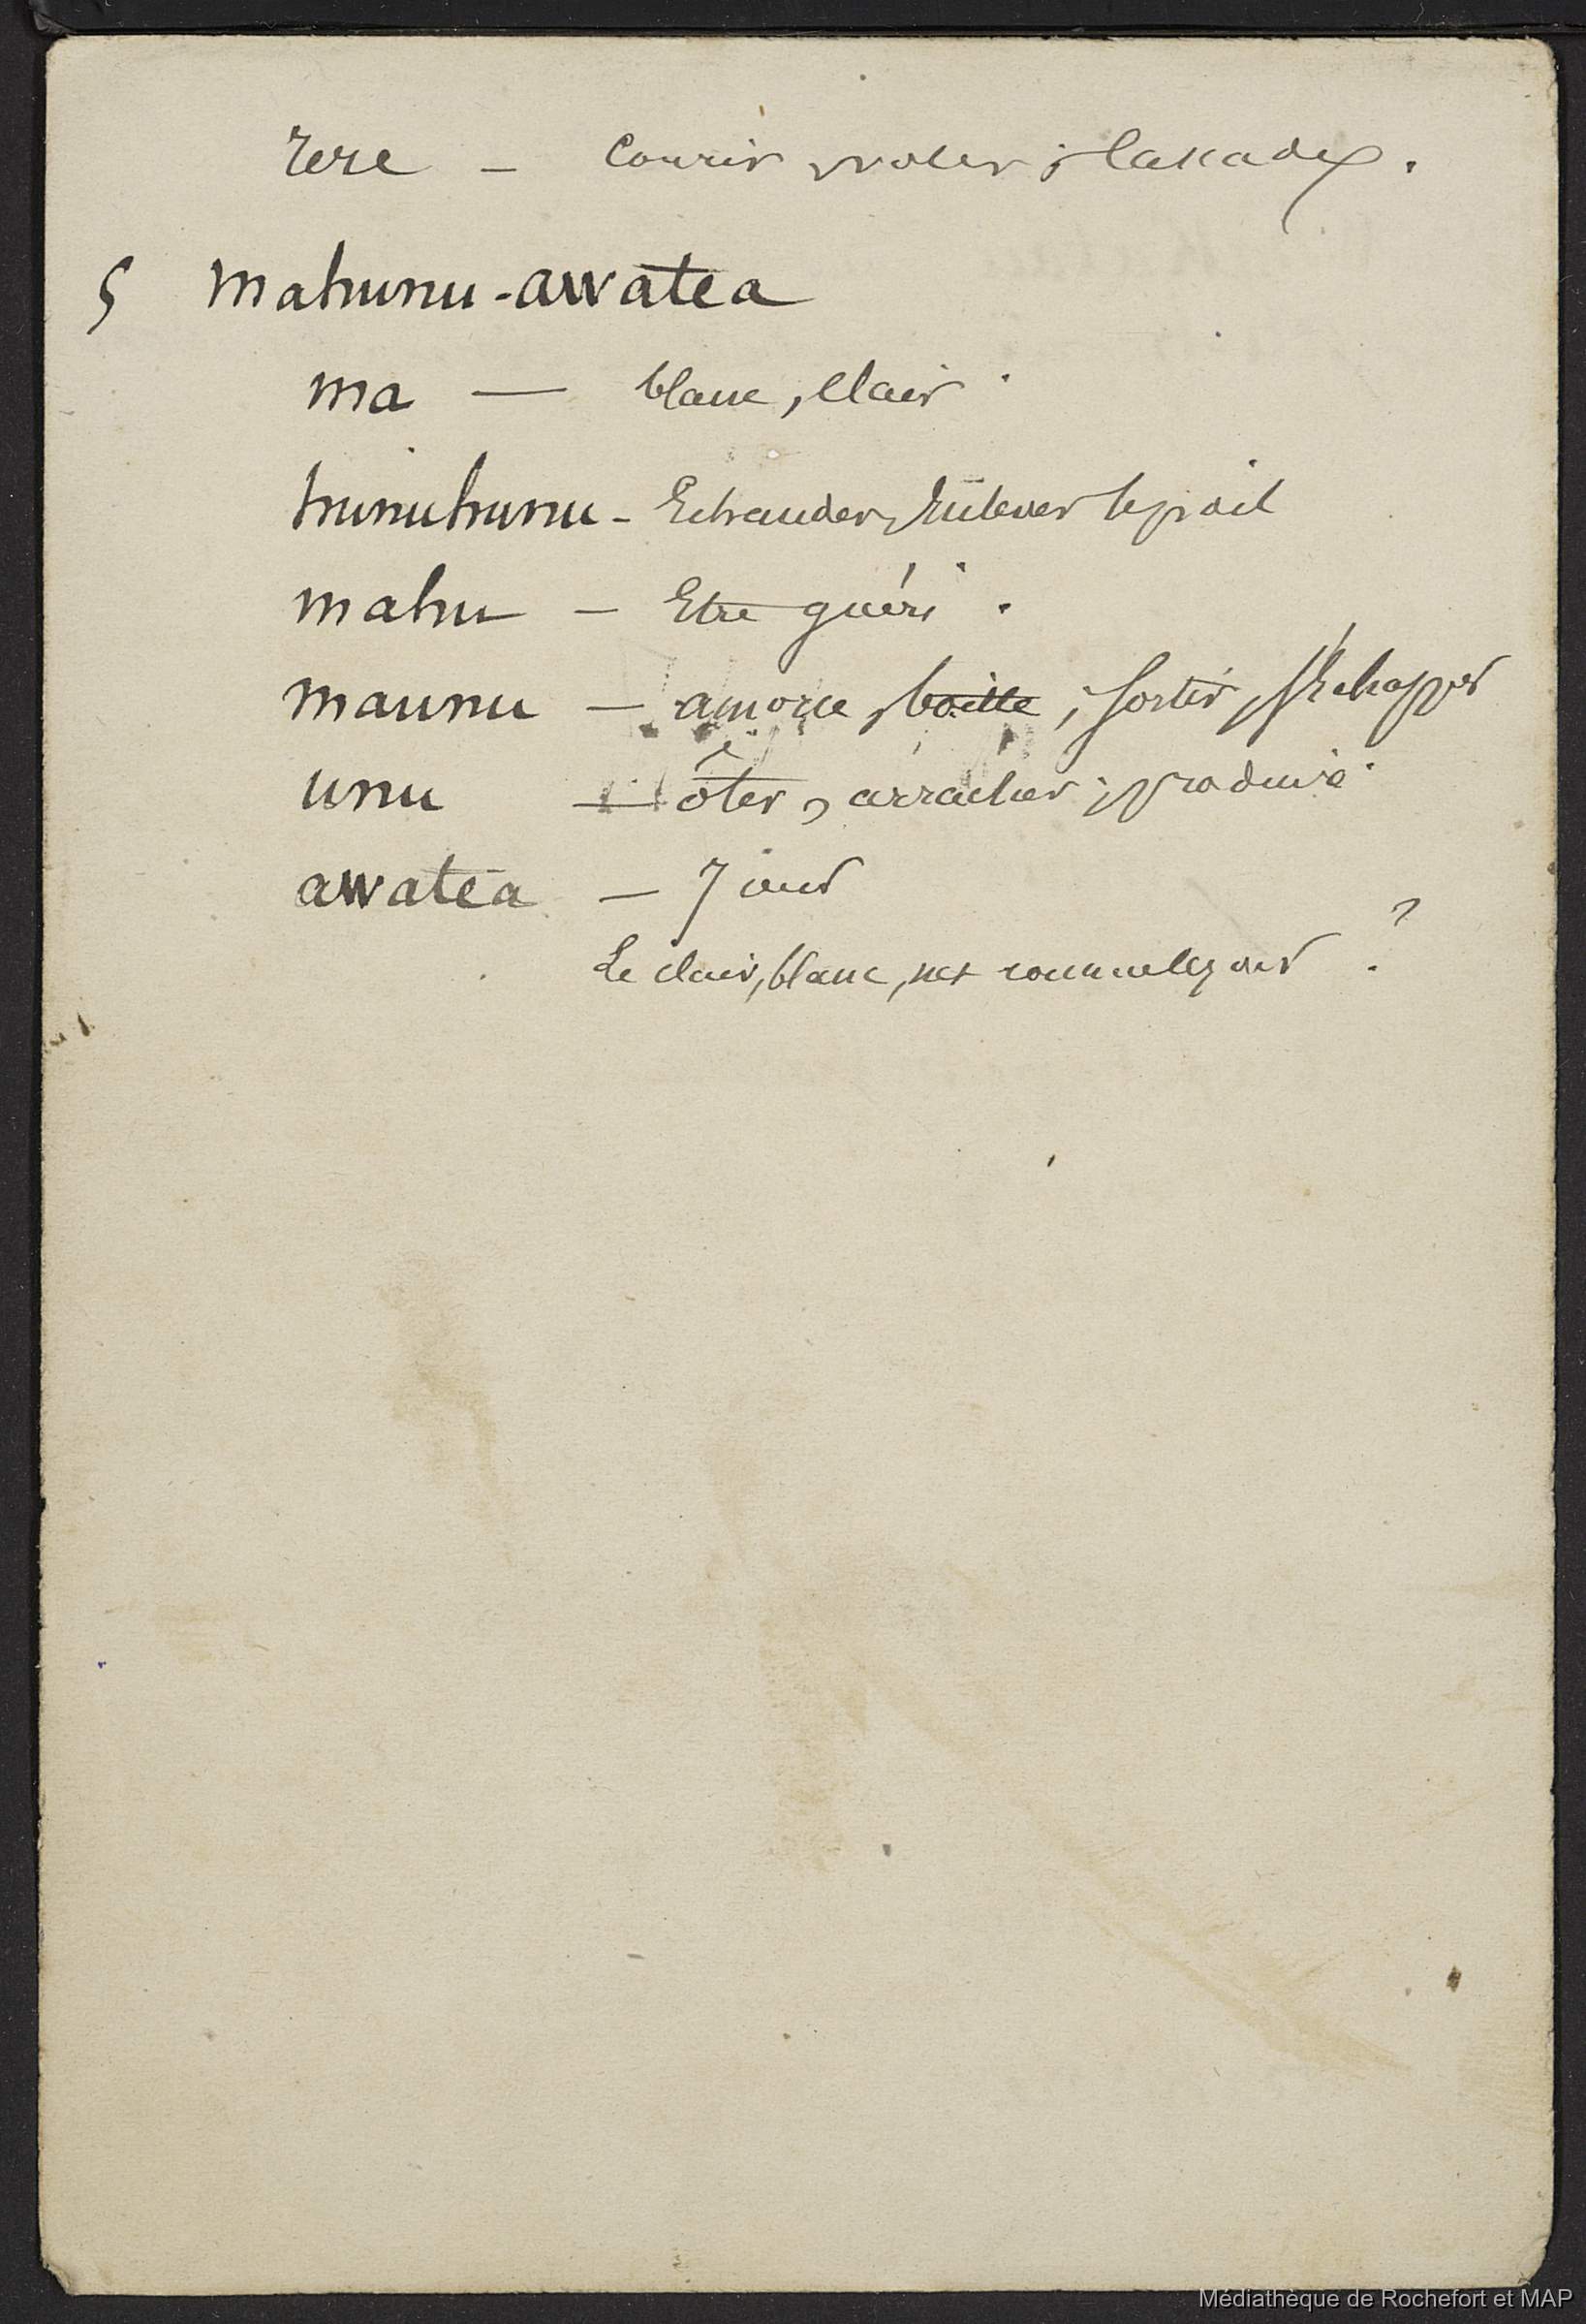 rere — Courir, voler; cascade.
5 Mahunu-awatea
ma — blanc, clair.
hunuhunu - Echauder, Enlever le poil
mahu — Etre guéri.
maunu — amorce, boitte; sortir, s'échapper
unu — ôter, arracher; produire.
awatea — Jour
Le clair, blanc, jour ?
Médiathèque de Rochefort et MAP